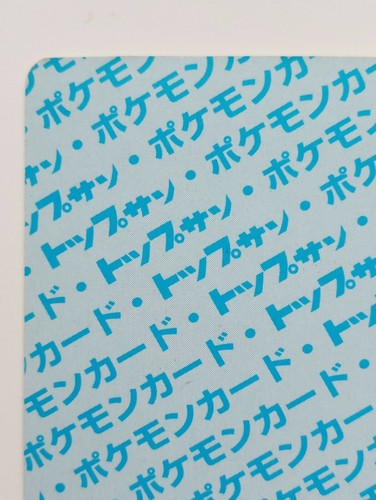 ポケモン
・ポケモンカ
サン・ポケモンカー
トップサン・ポケモンカ
トップサン・ポケモン
・トップサン・ポケ
ード・トップサン・ポ
カード・トップサン・
モンカード・トップサン
ポケモンカード・トップ
・ポケモンカード・ト
サン・ポケモンカード・
ポケモンカード
ポケモンカ